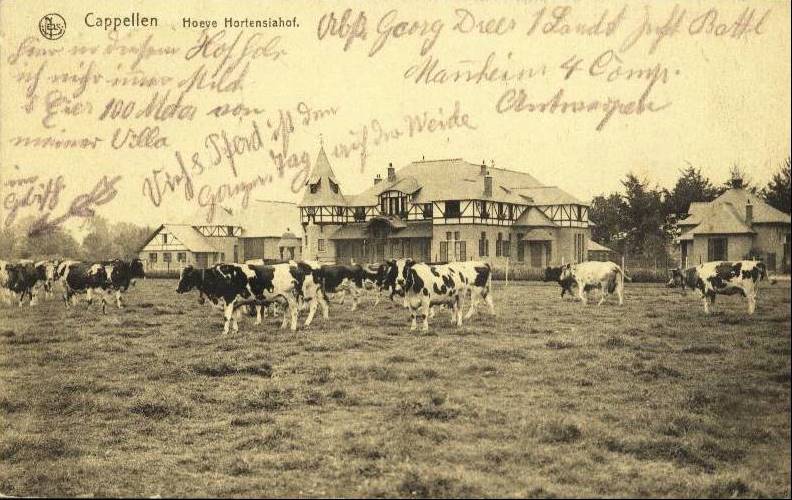 Cappellen Hoeve Hortensiahof.
Abs. Georg Dreer 1 Landst Inft Battl
Mannheim 4 Comp.
Antwerpen
hier in diesem Hof
ich mir immer Milch
100 Meter von
meiner Villa
Vieh & Pferd ist den
ganzen Tag auf der Weide